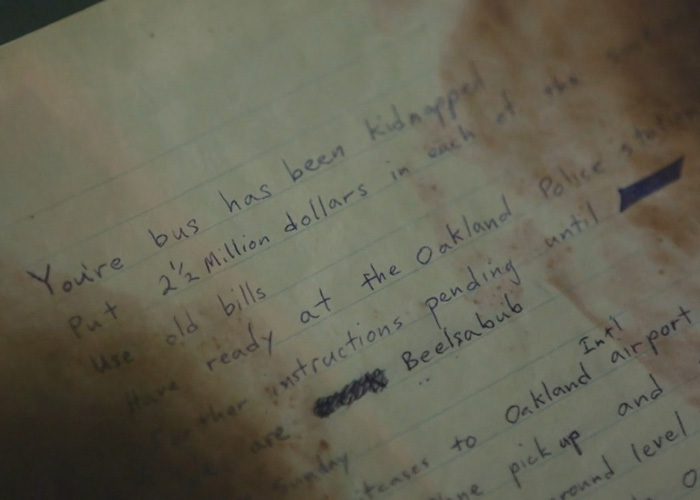 You're bus has been kidnapped
Put 2 1/2 Million dollars in each of the
Use old bills
Have ready at the Oakland Police station
further instructions pending until
are Beelsabub
Sunday
Int'l
suitcases to Oakland airport
pick up and
ground level